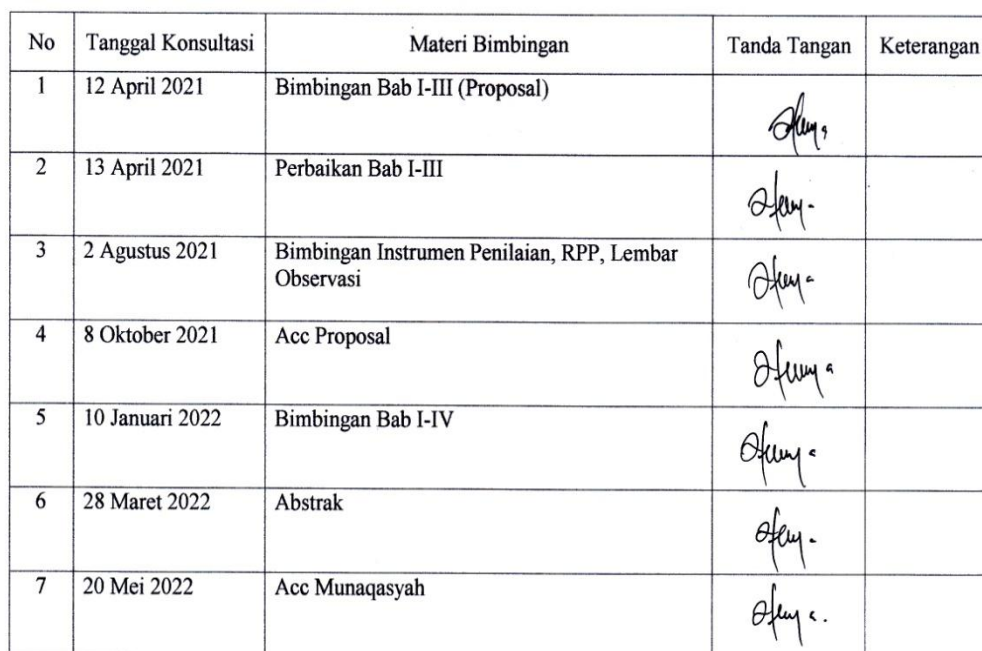 No Tanggal Konsultasi Materi Bimbingan Tanda Tangan Keterangan
1 12 April 2021 Bimbingan Bab I-III (Proposal)
2 13 April 2021 Perbaikan Bab I-III
3 2 Agustus 2021 Bimbingan Instrumen Penilaian, RPP, Lembar
Observasi
4 8 Oktober 2021 Acc Proposal
5 10 Januari 2022 Bimbingan Bab I-IV
6 28 Maret 2022 Abstrak
7 20 Mei 2022 Acc Munaqasyah